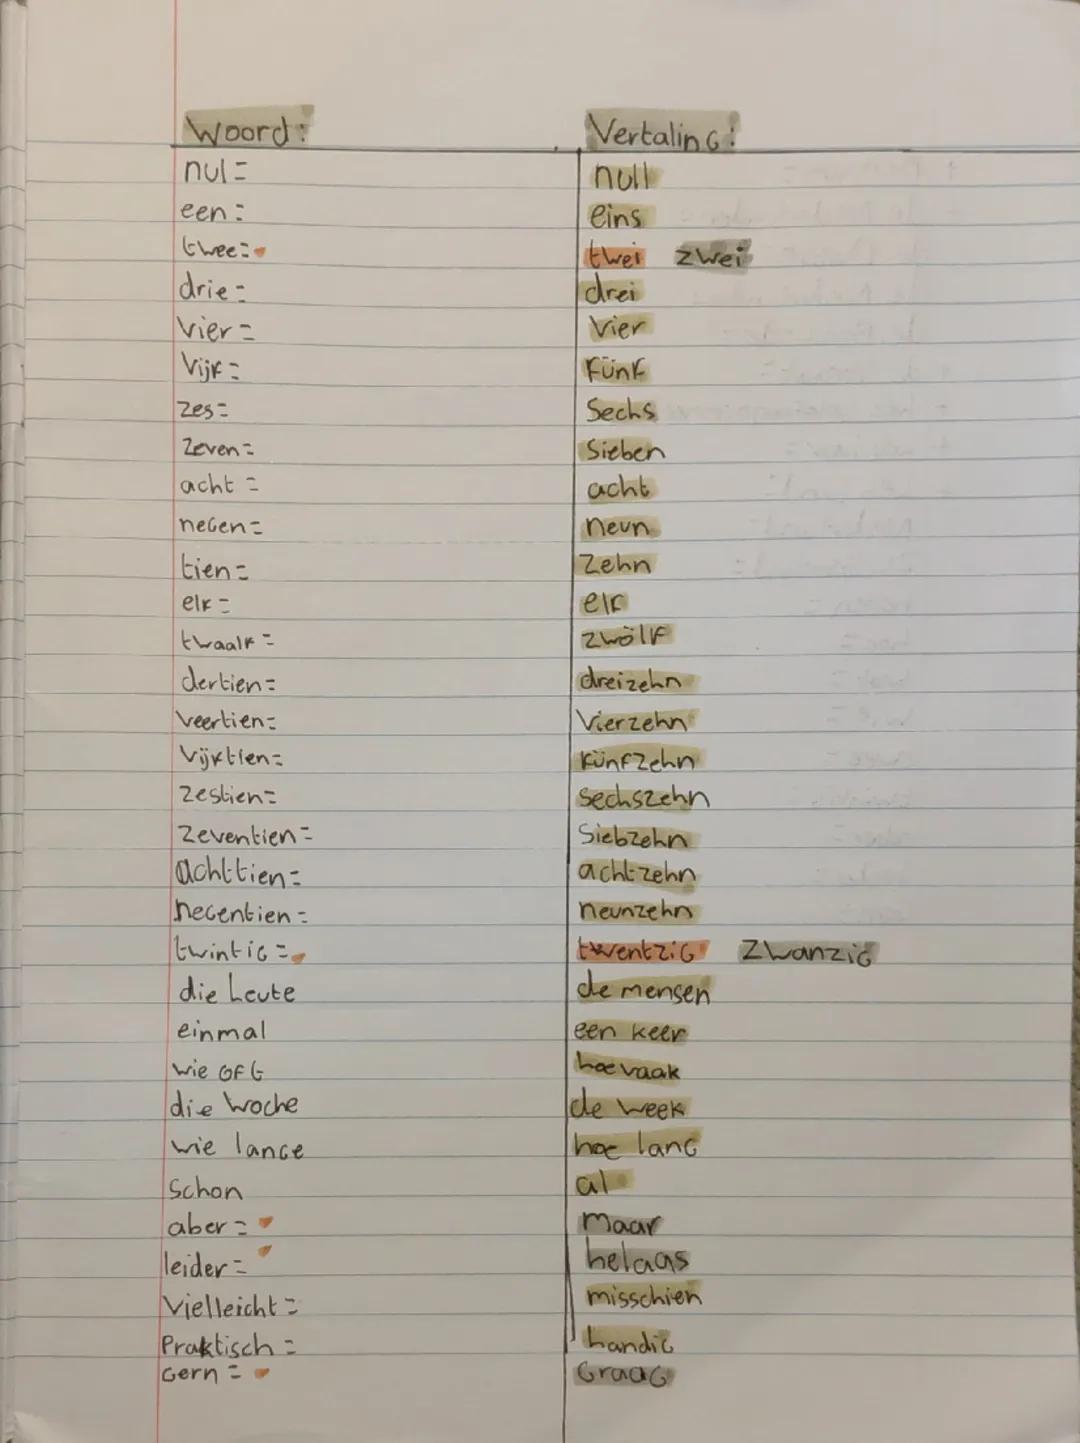 Woord: Vertaling:
nul = null
een = eins
twee = twei zwei
drie = drei
vier = vier
vijf = fünf
zes = sechs
zeven = sieben
acht = acht
negen = neun
tien = zehn
elf = elf
twaalf = zwölf
dertien = dreizehn
veertien = vierzehn
vijftien = fünfzehn
zestien = sechszehn
zeventien = siebzehn
achttien = achtzehn
negentien = neunzehn
twintig = twentzig zwanzig
die Leute de mensen
einmal een keer
wie oft hoe vaak
die Woche de week
wie lange hoe lang
schon al
aber = maar
leider = helaas
vielleicht = misschien
Praktisch = handig
gern = graag